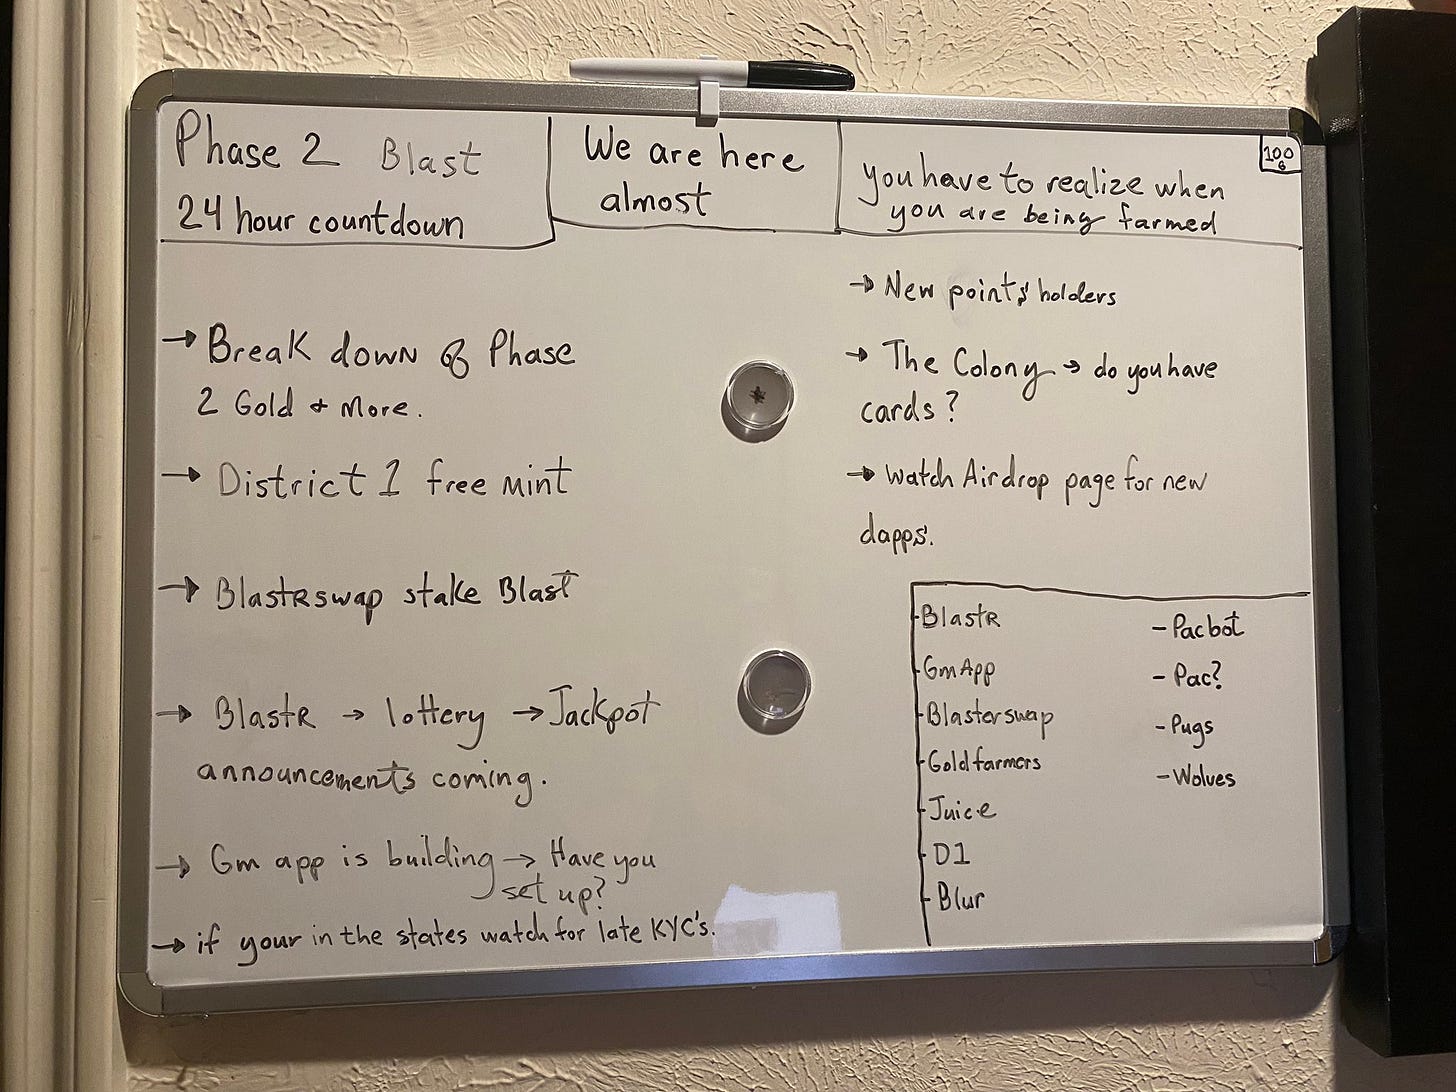 Phase 2 Blast
24 hour countdown
We are here
almost
you have to realize when
you are being farmed
100
6
→ Break down of Phase
2 Gold + More.
→ District 1 free mint
→ BlasteRswap stake Blast
→ BlastR → lottery → Jackpot
announcements coming.
→ Gm app is building → Have you
set up?
→ if your in the states watch for late KYC's.
→ New points holders
→ The Colony → do you have
cards?
→ watch Airdrop page for new
dapps.
- BlastR
- Gm App
- Blasterswap
- Goldfarmers
- Juice
- D1
- Blur
- Pacbot
- Pac?
- Pugs
- Wolves